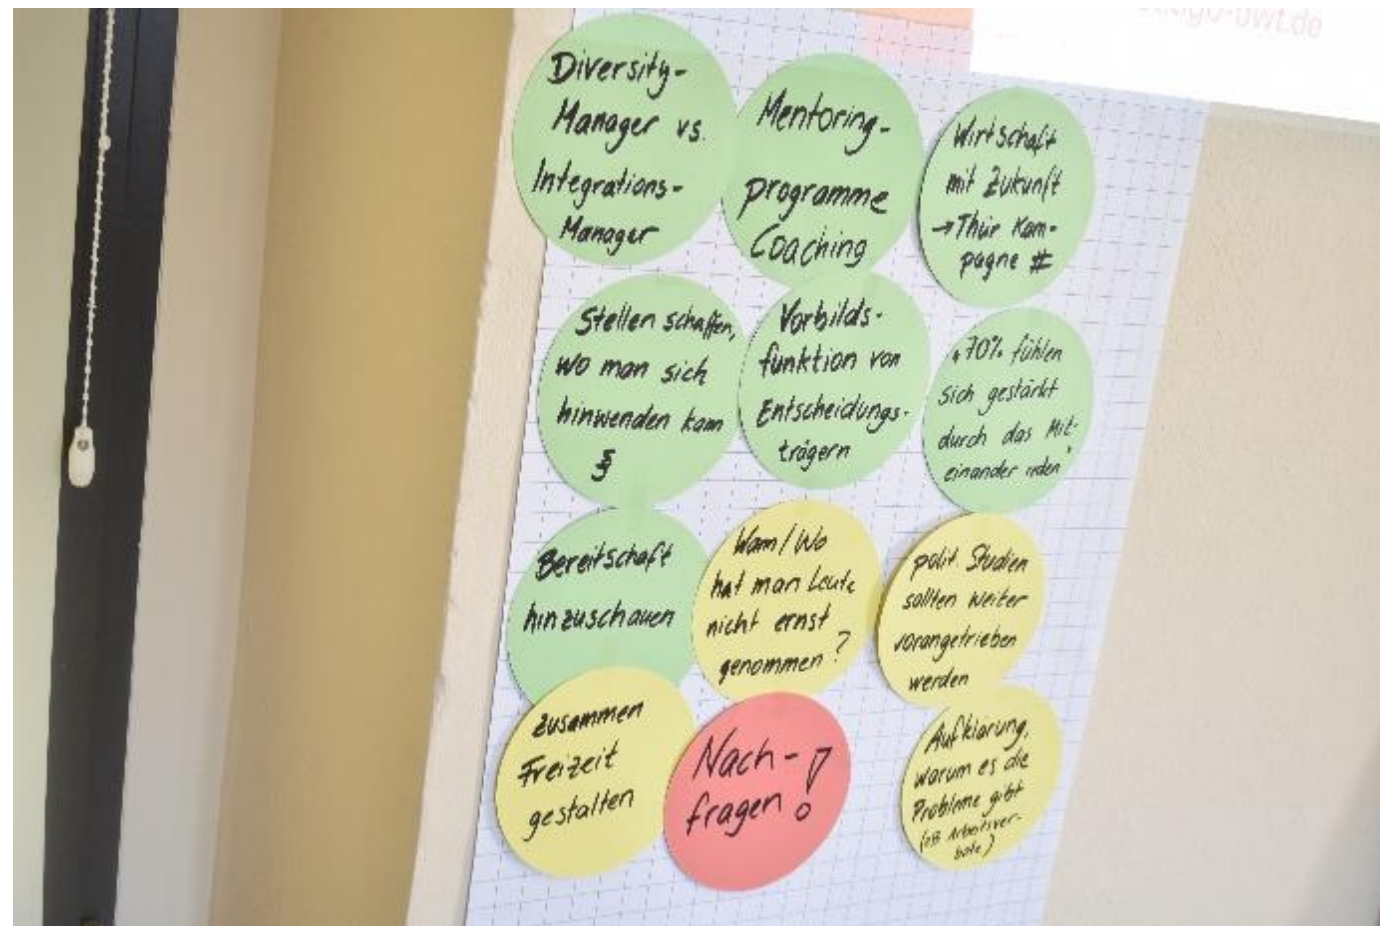 Diversity-
Manager vs.
Integrations-
Manager
Mentoring-
programme
Coaching
Wirtschaft
mit Zukunft
→ Thür Kam-
pagne #
Stellen schaffen,
wo man sich
hinwenden kann
§
Vorbilds-
funktion von
Entscheidungs-
trägern
„70% fühlen
sich gestärkt
durch das Mit-
einander reden"
Bereitschaft
hinzuschauen
Wann/Wo
hat man Leute
nicht ernst
genommen?
polit. Studien
sollten weiter
vorangetrieben
werden
Zusammen
Freizeit
gestalten
Nach-
fragen!
Aufklärung,
warum es die
Probleme gibt
(zB Arbeitsver-
bote)